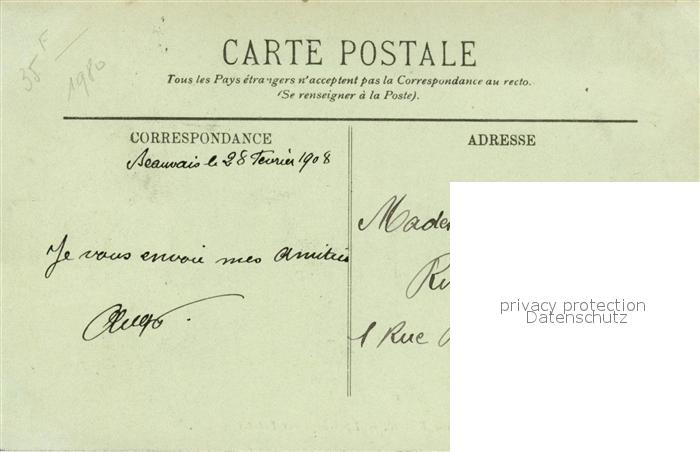 35 F
1980
CARTE POSTALE
Tous les Pays étrangers n'acceptent pas la Correspondance au recto.
(Se renseigner à la Poste).
CORRESPONDANCE
ADRESSE
Beauvais le 28 Février 1908
Je vous envoie mes amitiés
Made
1 Rue
privacy protection
Datenschutz